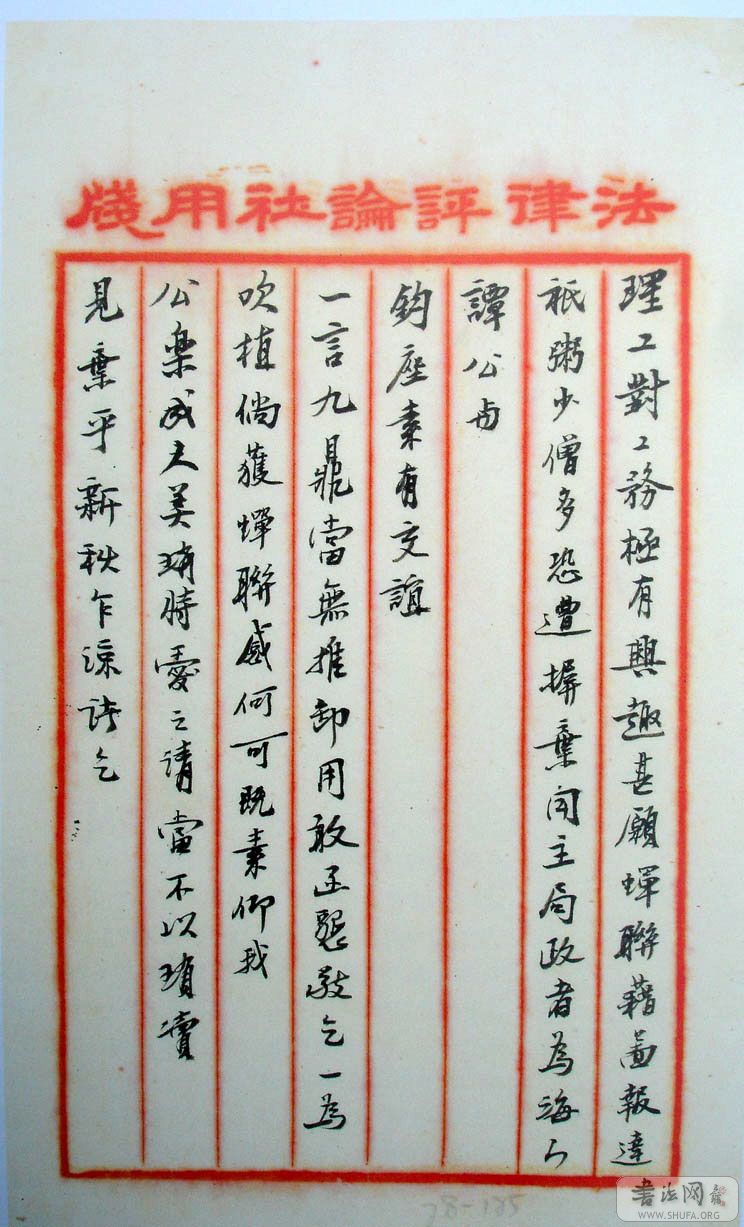 法律評論社用牋
理工對工務極有興趣甚願蟬聯藉圖報達
祇粥少僧多恐遭摒棄聞主局政者為海
譚公与
鈞座素有交誼
一言九鼎當無推卸用敢函懇敬乞一為
吹植倘獲蟬聯感何可既素仰我
公樂成人美時愛之請當不以瑣瀆
見棄乎新秋乍涼諸乞
78-185
书法网
WWW.SHUFA.ORG